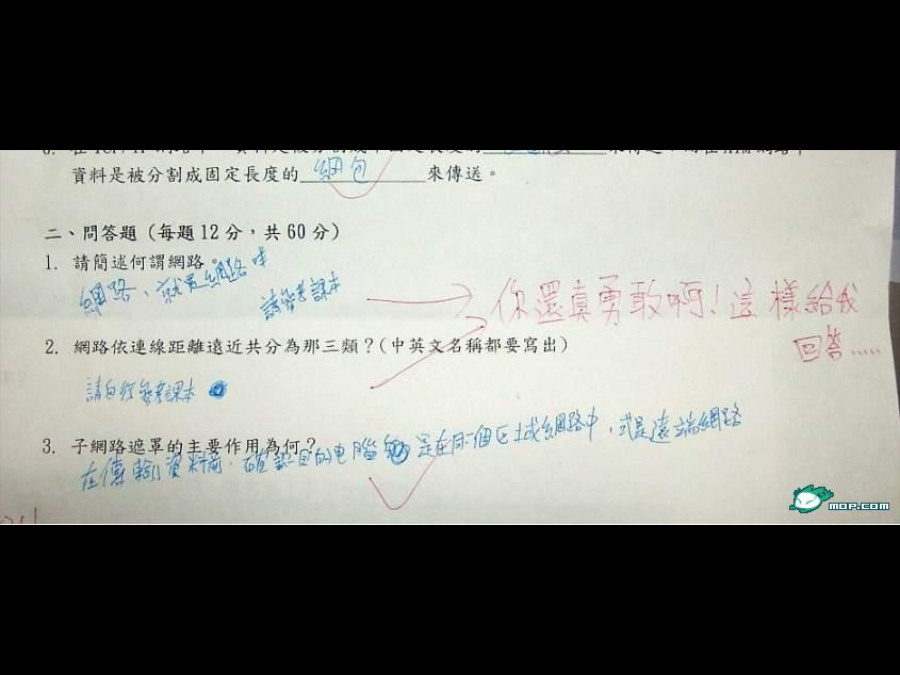 資料是被分割成固定長度的 網包 來傳送。
二、問答題 (每題 12 分,共 60 分)
1. 請簡述何謂網路。
網路、就是網路哇
請參考課本
你還真勇敢啊!這樣給我
回答.....
2. 網路依連線距離遠近共分為那三類?(中英文名稱都要寫出)
請自行參考課本
3. 子網路遮罩的主要作用為何?
在傳輸資料前,確認目的電腦 是在同一個区域網路中,或是遠端網路
mop.com